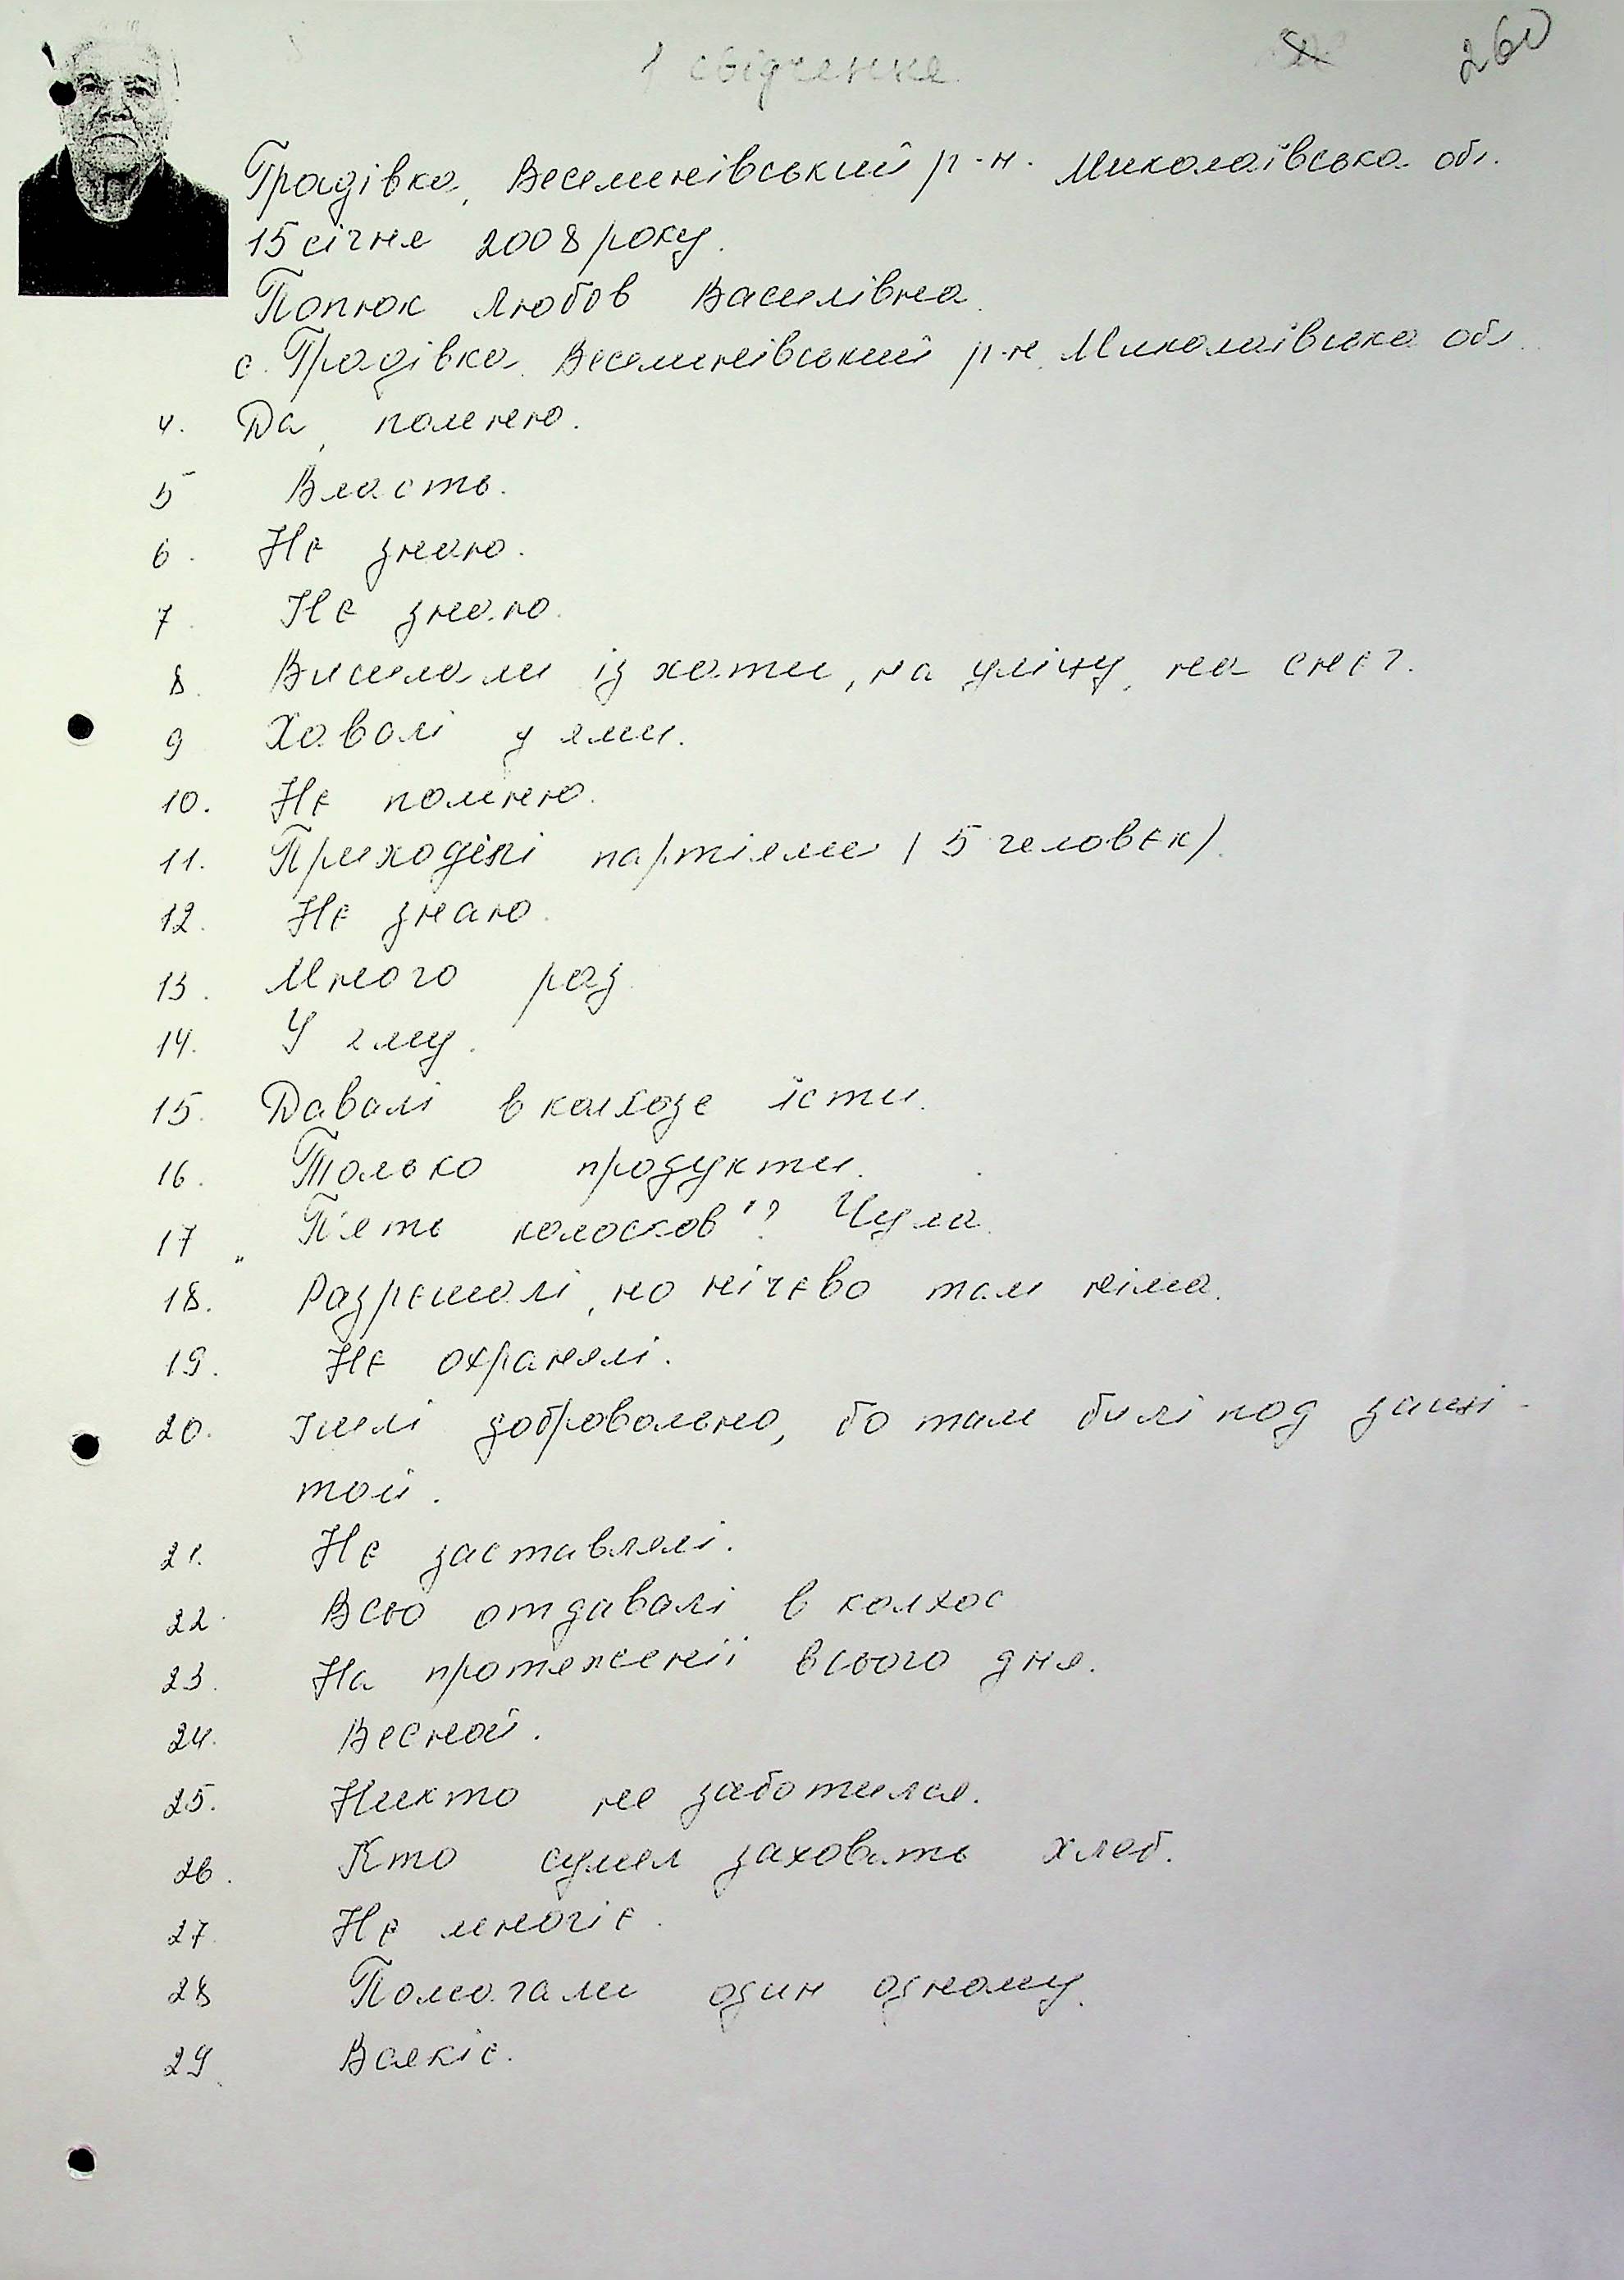 1 свідчення
260
Градівка, Веселинівський р-н. Миколаївська обл.
15 січня 2008 року.
Попюк Любов Василівна.
с. Градівка, Веселинівський р-н, Миколаївська обл.
4. Да, помню.
5 Власть.
6. Не знаю.
7. Не знаю.
8. Висилали із хати, на уліцу, на снєг.
9 Ховалі у ями.
10. Не помню.
11. Приходілі партіями (5 человек).
12. Не знаю.
13. Много раз.
14. У яму.
15. Давалі в колхозе їсти.
16. Только продукти.
17 „П'ять колосков"? Чула.
18. Разрешалі, но нічево там німа.
19. Не охранялі.
20. Ішлі добровольно, бо там билі под защі-
той.
21. Не заставлялі.
22. Всьо отдавалі в колхос
23. На протяженії всього дня.
24. Весной.
25. Никто не заботился.
26. Кто сумел заховать хлеб.
27. Не многіє.
28 Помогали один одному.
29. Всякіє.